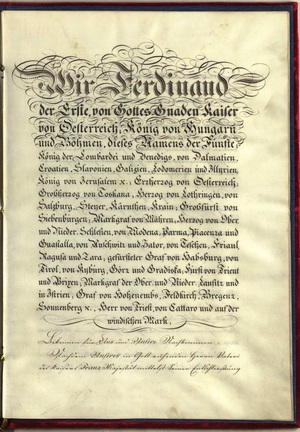 Wir Ferdinand
der Erste, von Gottes Gnaden Kaiser
von Oesterreich, König von Hungarn
und Böhmen, dieses Namens der Fünfte,
König der Lombardei und Venedigs, von Dalmatien,
Croatien, Slavonien, Galizien, Lodomerien und Illyrien,
König von Jerusalem ꝛc.; Erzherzog von Oesterreich;
Großherzog von Toskana, Herzog von Lothringen, von
Salzburg, Steyer, Kärnthen, Krain, Großfürst von
Siebenbürgen; Markgraf von Mähren, Herzog von Ober
und Nieder Schlesien, von Modena, Parma, Piacenza und
Guastalla, von Auschwitz und Zator, von Teschen, Friaul,
Ragusa und Zara; gefürsteter Graf von Habsburg, von
Tirol, von Kyburg, Görz und Gradiska, Fürst von Trient
und Brixen; Markgraf der Ober und Nieder Lausitz und
in Istrien; Graf von Hohenembs, Feldkirch, Bregenz,
Sonnenberg ꝛc., Herr von Triest, von Cattaro und auf der
windischen Mark;
für Uns und Unsere Nachkommen
in Gott ruhenden Herrn Vaters
des Kaisers Franz Majestät mittelst